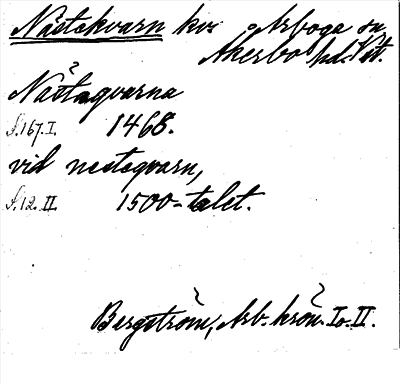 Nästekvarn kvi Arboga sn
Åkerbo hd. Vst.
Nästeqvarna
S.167.I. 1468.
vid nesteqvarn,
S.12.II. 1500-talet.
Bergström, Arb. krön. I o. II.